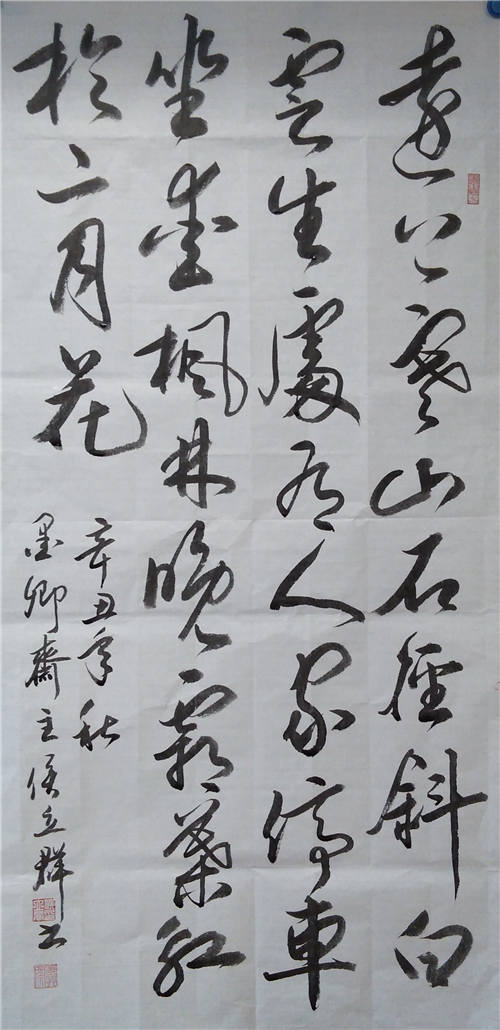 遠上寒山石徑斜白
雲生處有人家停車
坐愛楓林晚霜葉紅
於二月花
辛丑年秋
墨卿齋主侯立群書